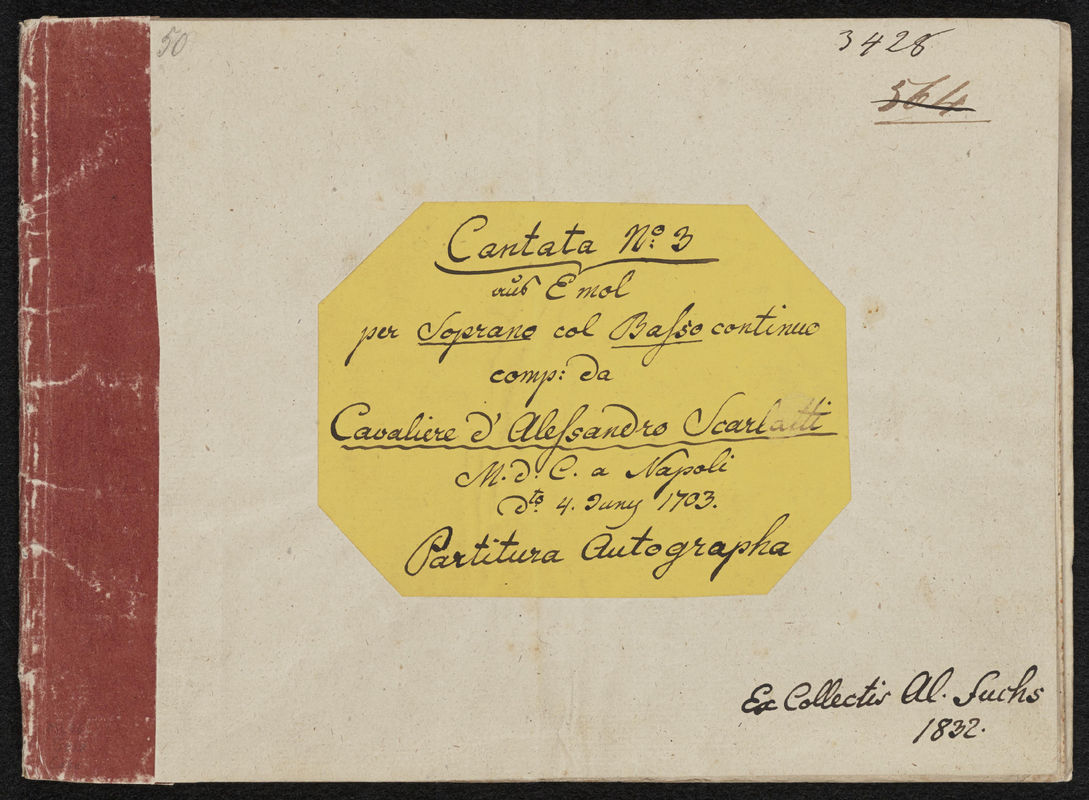 50
3428
564
Cantata Nº. 3
aus E mol
per Soprano col Baſso continuo
comp: da
Cavaliere d' Aleſsandro Scarlatti
M. d. C. a Napoli
dto. 4. Juny 1703.
Partitura Autographa
Ex Collectis Al. Fuchs
1832.